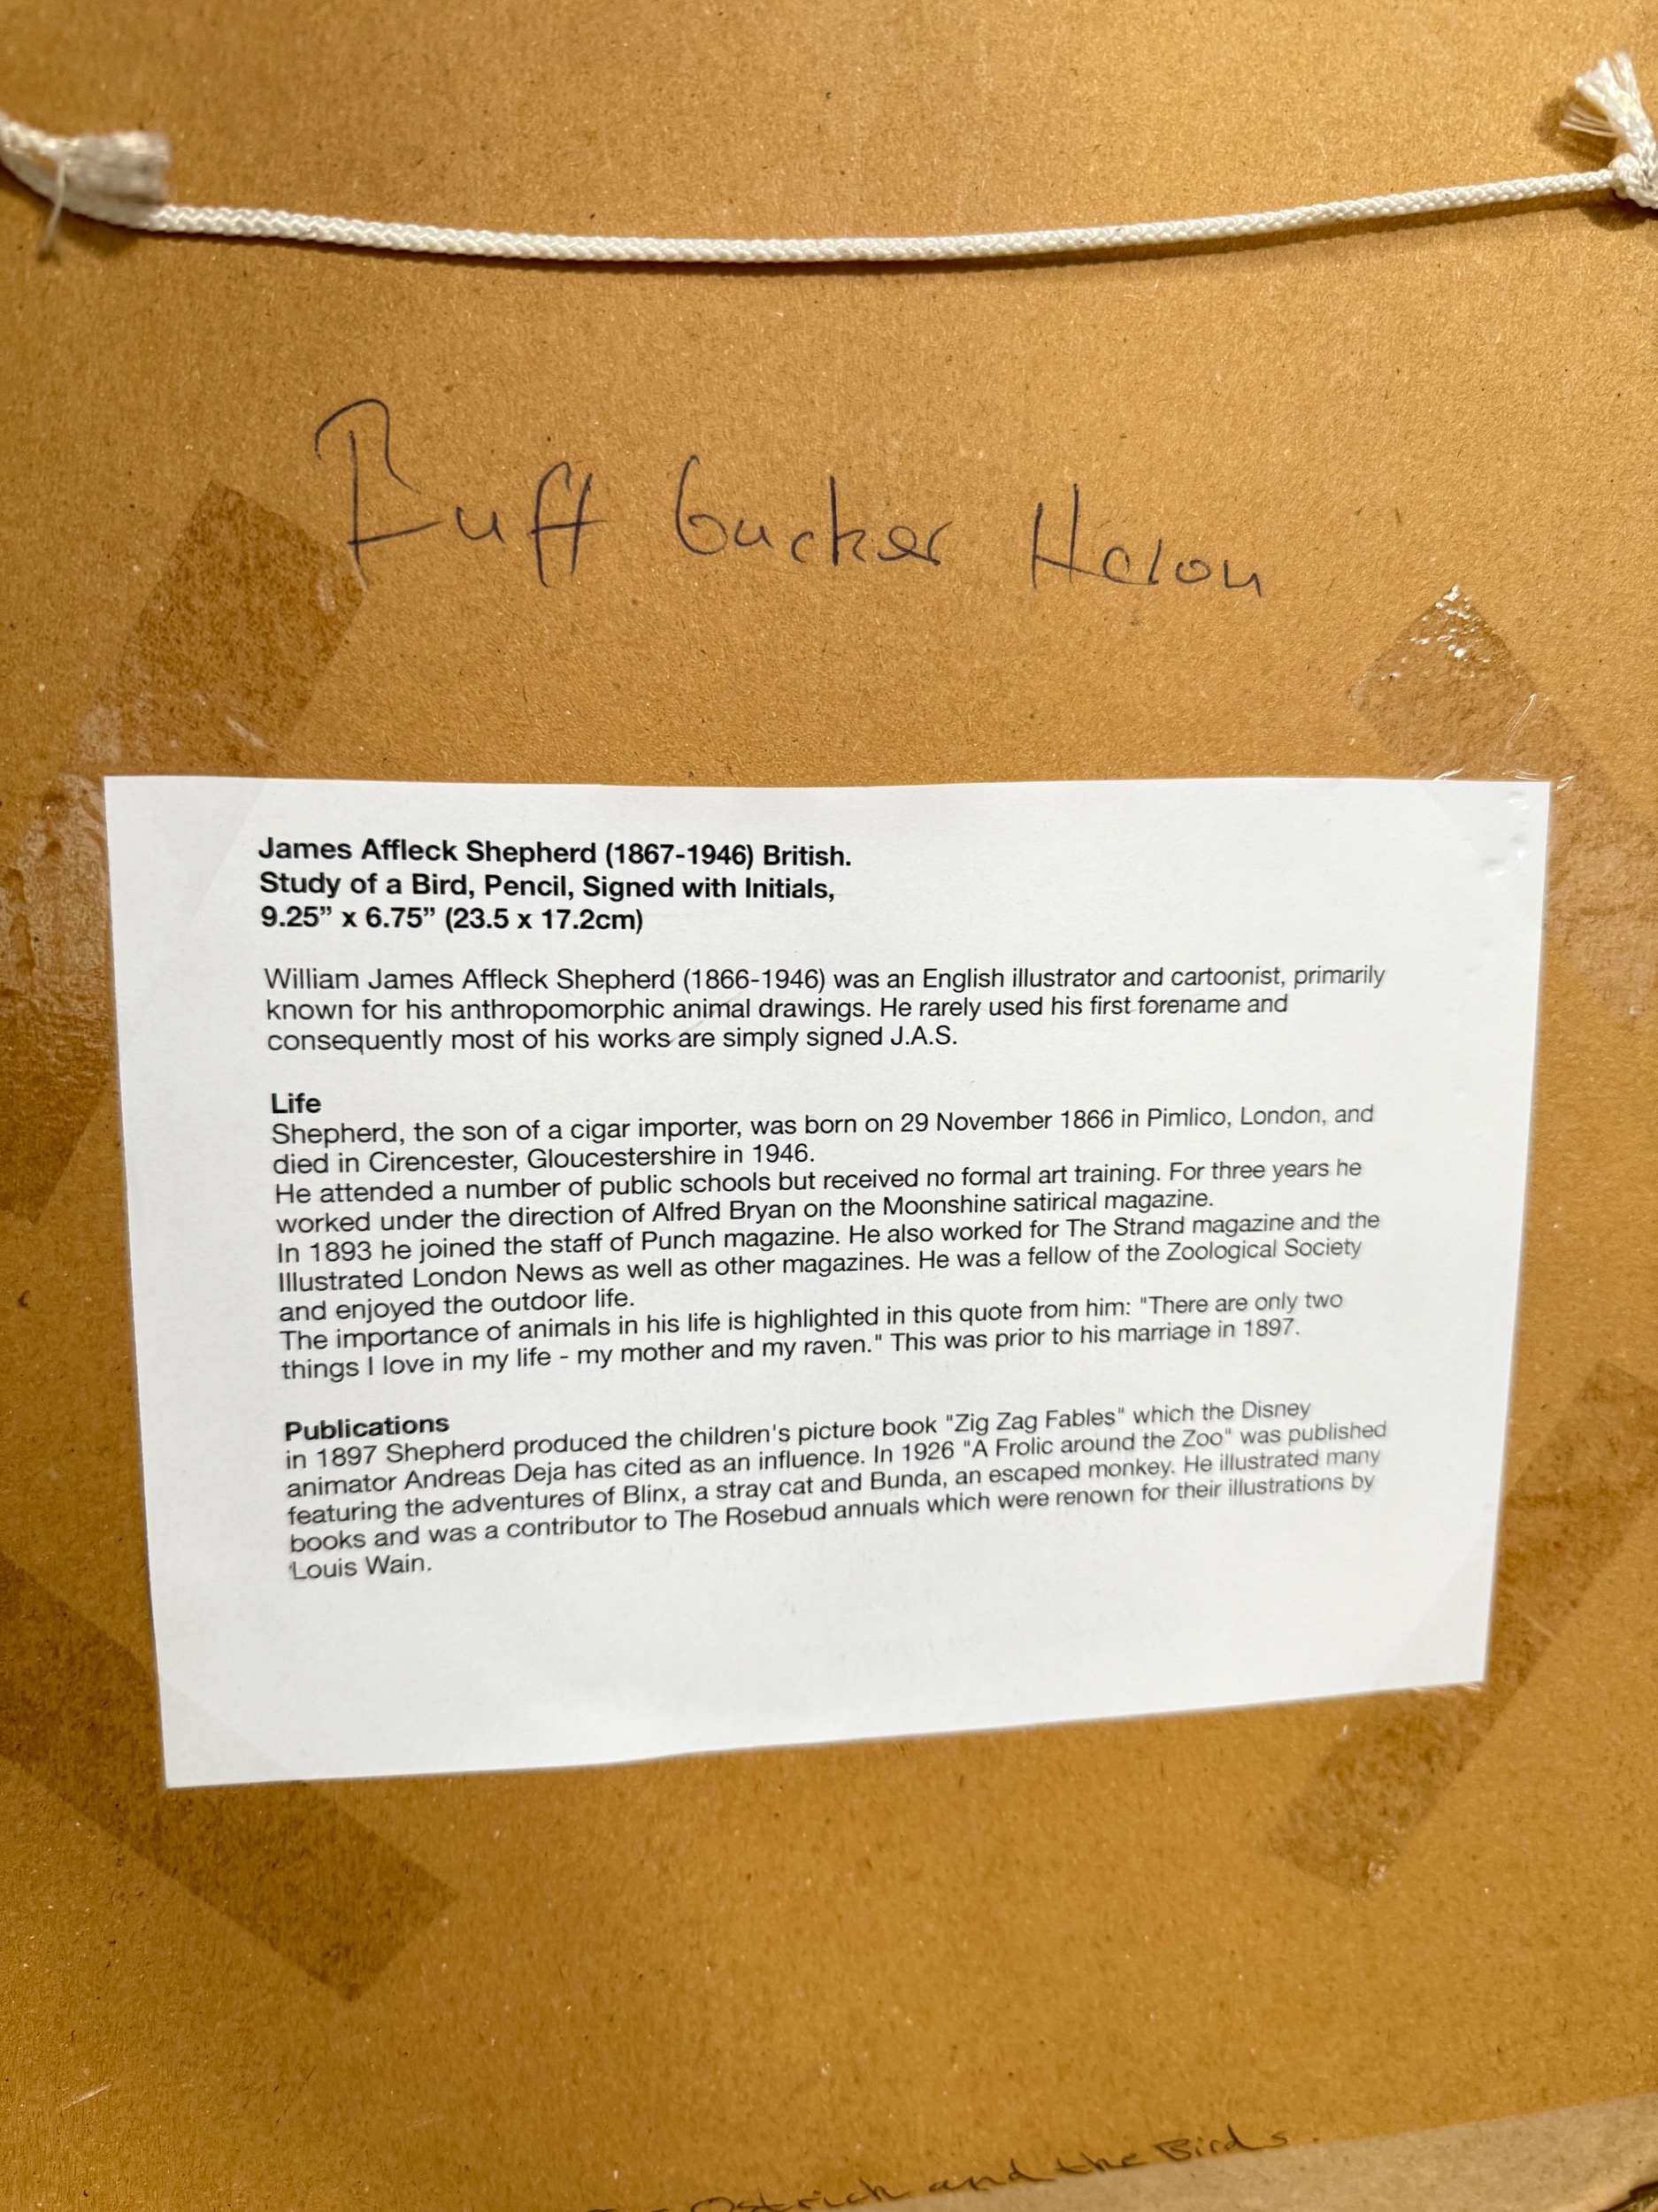 Buff bucker Heron
James Affleck Shepherd (1867-1946) British.
Study of a Bird, Pencil, Signed with Initials,
9.25” x 6.75” (23.5 x 17.2cm)
William James Affleck Shepherd (1866-1946) was an English illustrator and cartoonist, primarily
known for his anthropomorphic animal drawings. He rarely used his first forename and
consequently most of his works are simply signed J.A.S.
Life
Shepherd, the son of a cigar importer, was born on 29 November 1866 in Pimlico, London, and
died in Cirencester, Gloucestershire in 1946.
He attended a number of public schools but received no formal art training. For three years he
worked under the direction of Alfred Bryan on the Moonshine satirical magazine.
In 1893 he joined the staff of Punch magazine. He also worked for The Strand magazine and the
Illustrated London News as well as other magazines. He was a fellow of the Zoological Society
and enjoyed the outdoor life.
The importance of animals in his life is highlighted in this quote from him: "There are only two
things I love in my life - my mother and my raven." This was prior to his marriage in 1897.
Publications
in 1897 Shepherd produced the children's picture book "Zig Zag Fables" which the Disney
animator Andreas Deja has cited as an influence. In 1926 "A Frolic around the Zoo" was published
featuring the adventures of Blinx, a stray cat and Bunda, an escaped monkey. He illustrated many
books and was a contributor to The Rosebud annuals which were renown for their illustrations by
Louis Wain.
Ostrich and the Birds.